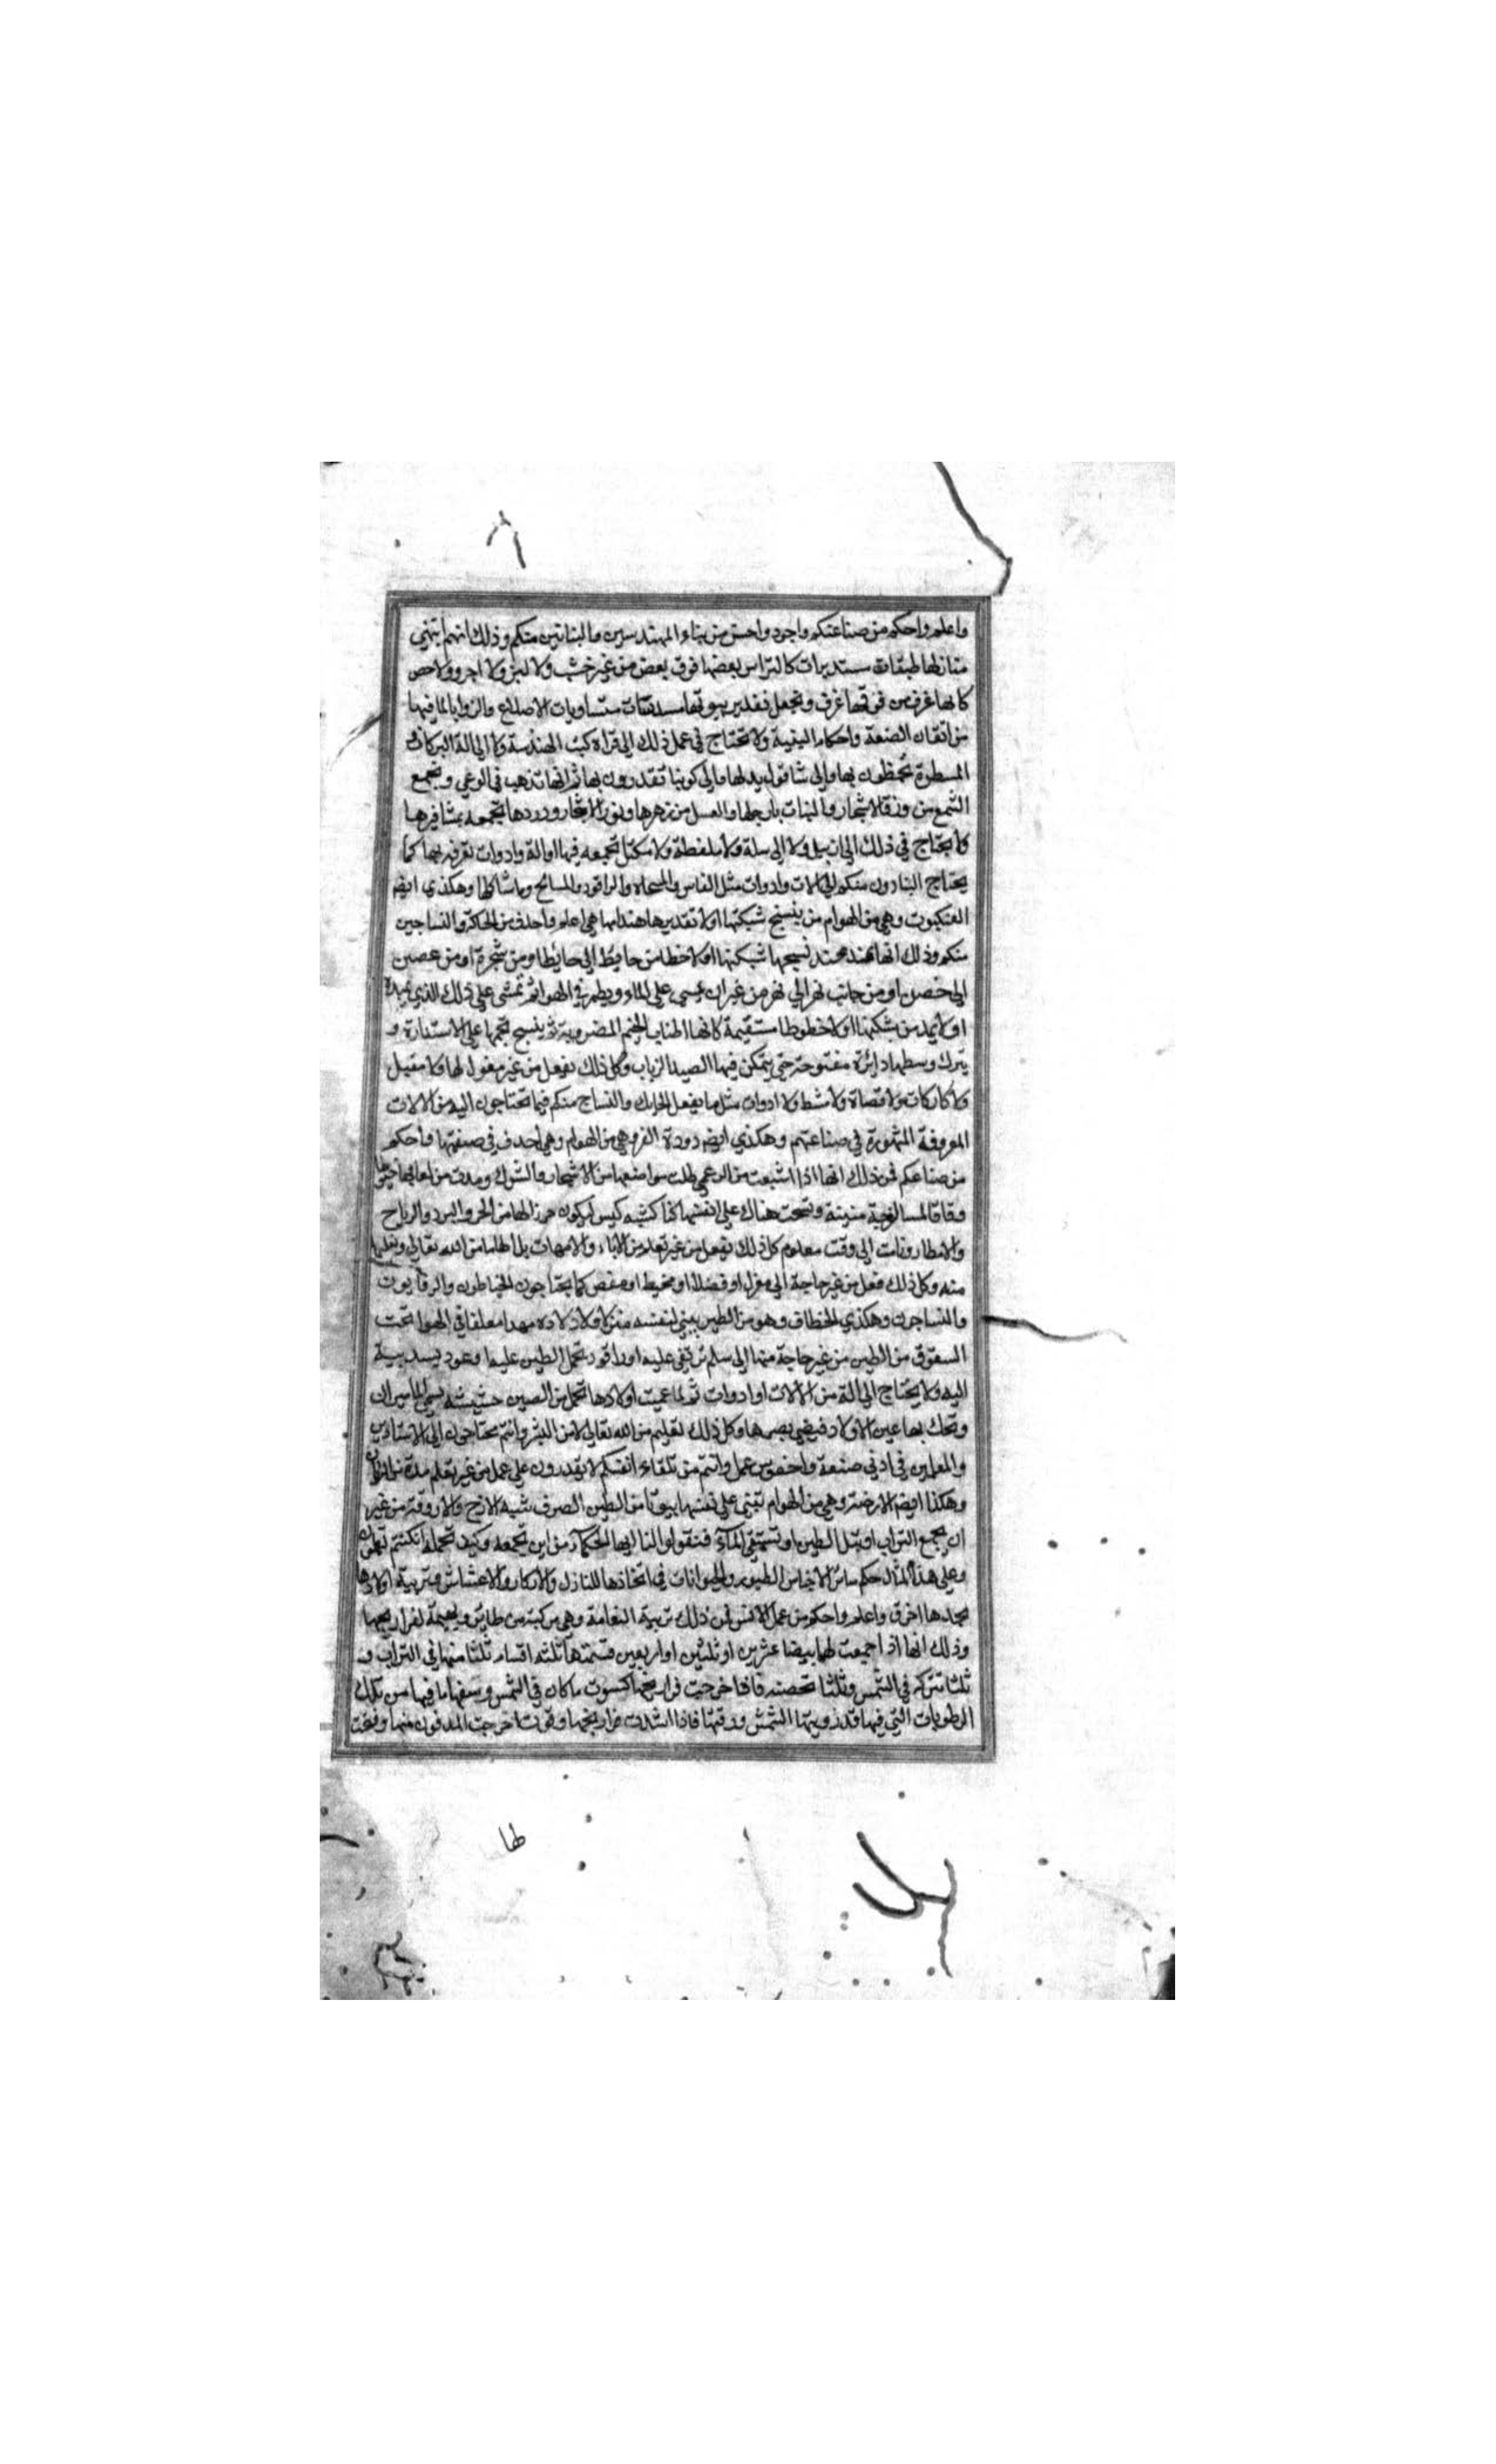 واعلم واحكم من صناعتكم واجود واحسن من بناء المهندسين والبنائين منكم وذلك انهم تبني
منازلها طبقات مستديرات كالتراس بعضها فوق بعض من غير خشب ولا لبن ولا اجر ولا جص
كانها غرف من فوقها غرف وتجعل تقدير بيوتها مسدسات متساويات الاضلاع والزوايا لما فيها
من اتقان الصنعة واحكام البنية ولا تحتاج في عمل ذلك الى قراة كتب الهندسة ولا الى الة البركار و
المسطرة تخطون بها والى شاقول يدلها والى كونيا تقدرون بها ثم انها تذهب في الرعي وتجمع
الشمع من ورق الاشجار والنبات بارجلها والعسل من زهرها ونور الاشجار ووردها تجمعه بمشافرها
ولا يحتاج في ذلك الى زنبيل ولا الى سلة ولا ملقطة ولا مكتل تجمعه فيها او الة وادوات تعرفه بها كما
يحتاج البنادون منكم الى الات وادوات مثل الفاس والمسحاه والراقود والمسائح وما شاكلها وهكذى ايضا
العنكبوت وهي من الهوام من ينسج شبكتها اولا تقديرها هندامها هي اعلم واحذق من الحاكة والنساجين
منكم وذلك انها تمد عند نسجها شبكتها اولا خطا من حايط الى حايط او من شجرة او من غصن
الى غصن او من جانب نهر الى نهر من غير ان يمسى على الماء ويطير في الهوا ثم تمشى على ذلك الذي تمده
اولا يمد من شبكتها اولا خطوطا مستقيمة كانها اطناب الخيم المضروبة ثم ينسج لحمها على الاستدارة و
يترك وسطها دائرة مفتوحة حتى يتمكن فيها الصيد الزباب وكل ذلك تفعل من غير مغول لها ولا مقيل
ولا كاركات ولا قصاة ولا مشط ولا ادوات مثل ما يفعل الحايك والنساج منكم فيما تحتاجون اليه من الالات
المعروفة المشهورة في صناعتهم وهكذى ايضا دودة القز وهي من الهوام وهي احذق في صنعتها واحكم
من صناعكم فمن ذلك انها اذا شبعت من الرعي طلت مواضعها من الاشجار والشوك ومدت من لعابها خيوطا
دقاقا لمسا لزجة متينة ونسجت هناك على انفسها كنا كشبه كيس ليكون حرزا لها من الحر والبرد والرياح
والامطار ونامت الى وقت معلوم كل ذلك تفعل من غير تعلم من الاباء والامهات بل الهاما من الله تعالى وتعليما
منه وكل ذلك فعل من غير حاجة الى مغزل او فضلة او مخيط او مقص كما يحتاجون الخياطون والرفايون
والنساجون وهكذى الخطاف وهو من الطير يبني لنفسه منزلا ولاولاده مهدا معلقا في الهوا تحت
السقوف من الطين من غير حاجة منها الى سلم ترتقى عليه او راقود تحمل الطين عليها وعود يسد بيته
اليه ولا يحتاج الى الة من الالات او ادوات ثم لما عميت اولادها تحمل من الصين حشيشه يسمى الماميران
وتحك بها عين الاولاد فيضي بصرها وكل ذلك تعليم من الله تعالى لا من البشر وانتم محتاجون الى الاستادين
والمعلمين في ادنى صنعة واخفض عمل وانتم من تلقاء انفسكم لا يقدرون على عمل من غير تعلم مدة من الزمان
وهكذا ايضا الارضة وهي من الهوام تبنى على نفسها بيوتا من الطين الصرف شبه الازج والاروقة من غير
ان يجمع التراب او تبل الطين او تستقى الماء فتقولوا لنا ايها الحكماء من اين تجمعه وكيف تحمله ان كنتم تعلمون
وعلى هذا المثال حكم سائر الاجناس الطيور والحيوانات في اتخاذها للنازل والاوكار والاعشاش وتربية اولادها
تجدها احذق واعلم واحكم من عمل الانس فمن ذلك تربية النعامة وهي مركبة من طائر وبهيمة لفراريجها
وذلك انها اذا جمعت لها بيضا عشرين او ثلثين او اربعين قسمتها ثلثه اقسام ثلثا منها في التراب و
ثلثا تتركه في الشمس وثلثا تحضنه فاذا خرجت فراريخها كسرت ما كان في الشمس وسقها ما فيها من تلك
الرطوبات التي فيها قد ذويتها الشمس ورقتها فاذا اشتدت فراريخها وقوت اخرجت المدفون منها وفتحت
طا